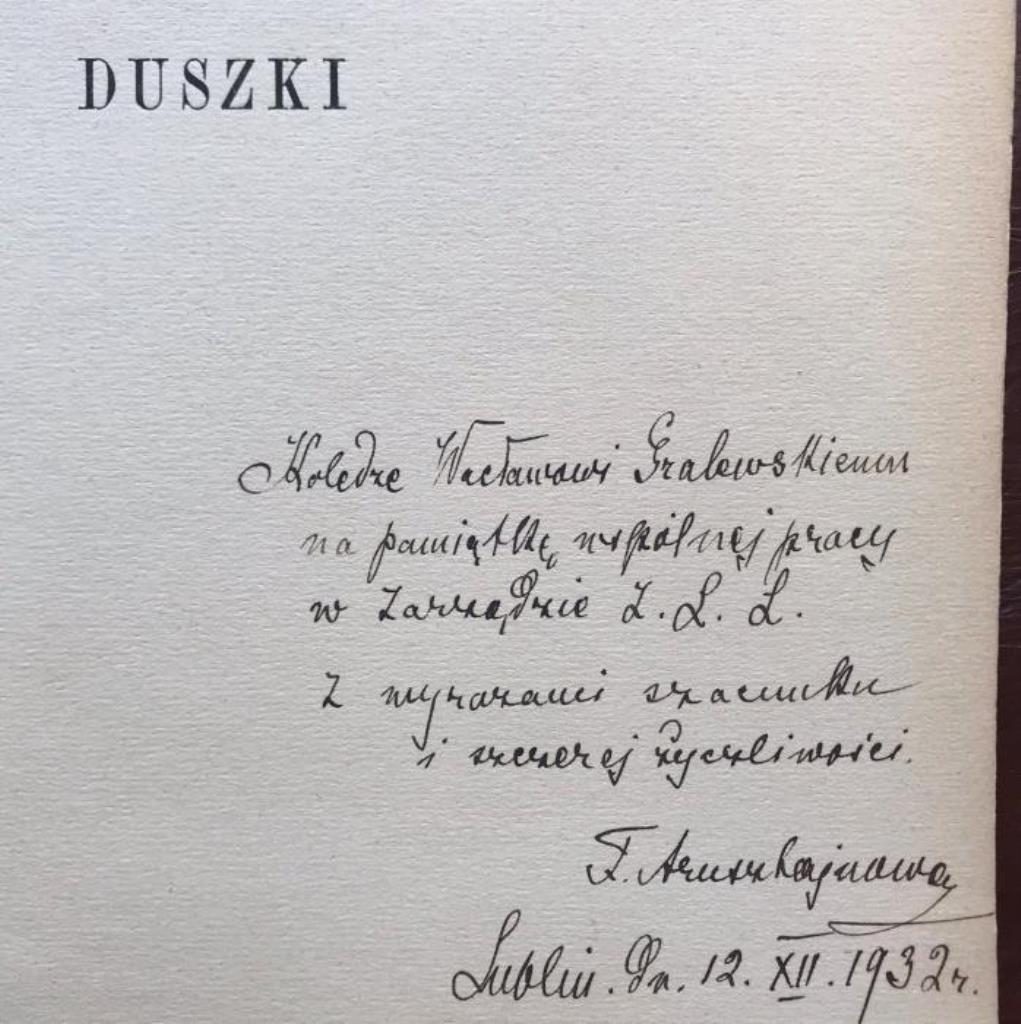 DUSZKI
Koledze Wacławowi Gralewskiemu
na pamiątkę wspólnej pracy
w Zarządzie Z. L. L.
z wyrazami szacunku
i szczerej życzliwości.
F. Arnsztajnowa
Lublin. Dn. 12. XII. 1932 r.